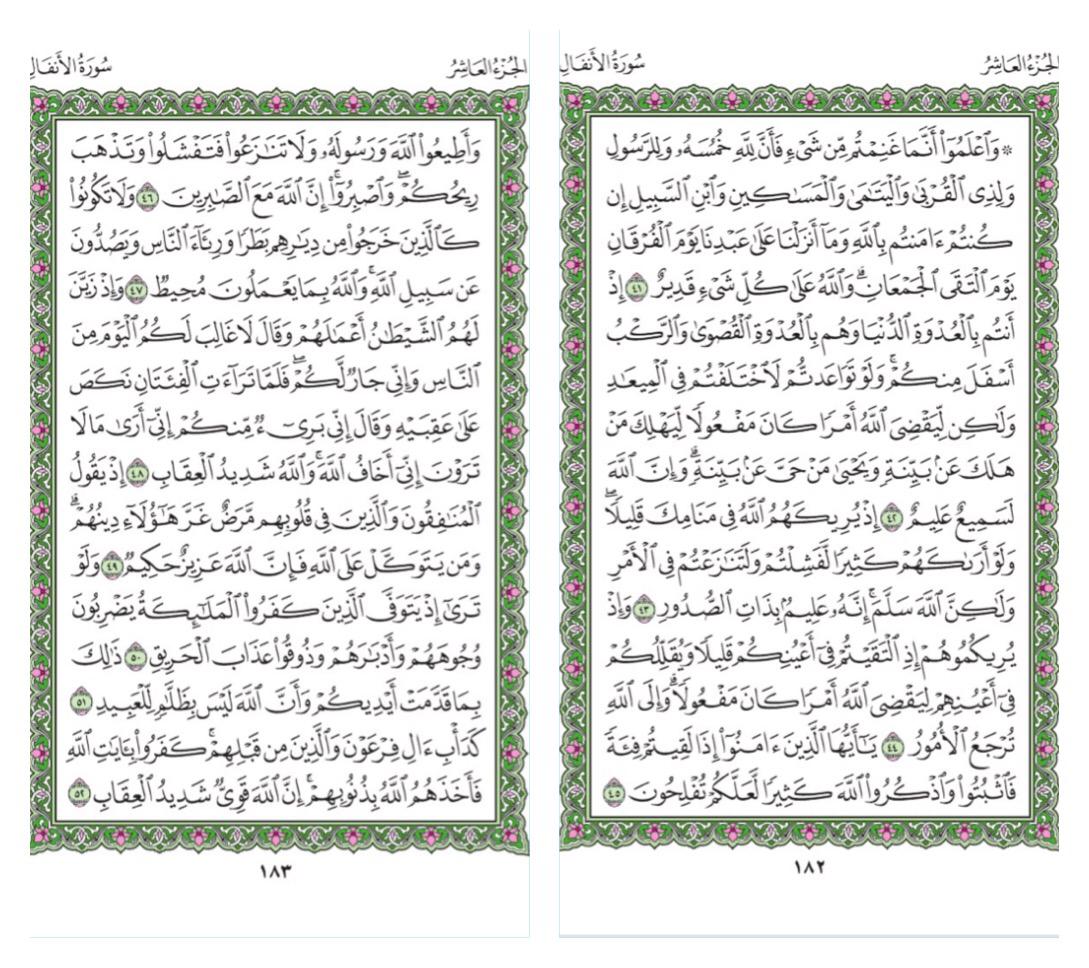 الجُزْءُ العَاشِرُ سُورَةُ الأَنفَالِ
۞ وَٱعْلَمُوٓا۟ أَنَّمَا غَنِمْتُم مِّن شَىْءٍ فَأَنَّ لِلَّهِ خُمُسَهُۥ وَلِلرَّسُولِ
وَلِذِى ٱلْقُرْبَىٰ وَٱلْيَتَٰمَىٰ وَٱلْمَسَٰكِينِ وَٱبْنِ ٱلسَّبِيلِ إِن
كُنتُمْ ءَامَنتُم بِٱللَّهِ وَمَآ أَنزَلْنَا عَلَىٰ عَبْدِنَا يَوْمَ ٱلْفُرْقَانِ
يَوْمَ ٱلْتَقَى ٱلْجَمْعَانِ ۗ وَٱللَّهُ عَلَىٰ كُلِّ شَىْءٍ قَدِيرٌ ٤١ إِذْ
أَنتُم بِٱلْعُدْوَةِ ٱلدُّنْيَا وَهُم بِٱلْعُدْوَةِ ٱلْقُصْوَىٰ وَٱلرَّكْبُ
أَسْفَلَ مِنكُمْ ۚ وَلَوْ تَوَاعَدتُّمْ لَٱخْتَلَفْتُمْ فِى ٱلْمِيعَٰدِ
وَلَٰكِن لِّيَقْضِىَ ٱللَّهُ أَمْرًا كَانَ مَفْعُولًا لِّيَهْلِكَ مَنْ
هَلَكَ عَنۢ بَيِّنَةٍ وَيَحْيَىٰ مَنْ حَىَّ عَنۢ بَيِّنَةٍ ۗ وَإِنَّ ٱللَّهَ
لَسَمِيعٌ عَلِيمٌ ٤٢ إِذْ يُرِيكَهُمُ ٱللَّهُ فِى مَنَامِكَ قَلِيلًا ۖ
وَلَوْ أَرَىٰكَهُمْ كَثِيرًا لَّفَشِلْتُمْ وَلَتَنَٰزَعْتُمْ فِى ٱلْأَمْرِ
وَلَٰكِنَّ ٱللَّهَ سَلَّمَ ۗ إِنَّهُۥ عَلِيمٌۢ بِذَاتِ ٱلصُّدُورِ ٤٣ وَإِذْ
يُرِيكُمُوهُمْ إِذِ ٱلْتَقَيْتُمْ فِىٓ أَعْيُنِكُمْ قَلِيلًا وَيُقَلِّلُكُمْ
فِىٓ أَعْيُنِهِمْ لِيَقْضِىَ ٱللَّهُ أَمْرًا كَانَ مَفْعُولًا ۗ وَإِلَى ٱللَّهِ
تُرْجَعُ ٱلْأُمُورُ ٤٤ يَٰٓأَيُّهَا ٱلَّذِينَ ءَامَنُوٓا۟ إِذَا لَقِيتُمْ فِئَةً
فَٱثْبُتُوا۟ وَٱذْكُرُوا۟ ٱللَّهَ كَثِيرًا لَّعَلَّكُمْ تُفْلِحُونَ ٤٥
١٨٢
الجُزْءُ العَاشِرُ سُورَةُ الأَنفَالِ
وَأَطِيعُوا۟ ٱللَّهَ وَرَسُولَهُۥ وَلَا تَنَٰزَعُوا۟ فَتَفْشَلُوا۟ وَتَذْهَبَ
رِيحُكُمْ ۖ وَٱصْبِرُوٓا۟ ۚ إِنَّ ٱللَّهَ مَعَ ٱلصَّٰبِرِينَ ٤٦ وَلَا تَكُونُوا۟
كَٱلَّذِينَ خَرَجُوا۟ مِن دِيَٰرِهِم بَطَرًا وَرِئَآءَ ٱلنَّاسِ وَيَصُدُّونَ
عَن سَبِيلِ ٱللَّهِ ۚ وَٱللَّهُ بِمَا يَعْمَلُونَ مُحِيطٌ ٤٧ وَإِذْ زَيَّنَ
لَهُمُ ٱلشَّيْطَٰنُ أَعْمَٰلَهُمْ وَقَالَ لَا غَالِبَ لَكُمُ ٱلْيَوْمَ مِنَ
ٱلنَّاسِ وَإِنِّى جَارٌ لَّكُمْ ۖ فَلَمَّا تَرَآءَتِ ٱلْفِئَتَانِ نَكَصَ
عَلَىٰ عَقِبَيْهِ وَقَالَ إِنِّى بَرِىٓءٌ مِّنكُمْ إِنِّىٓ أَرَىٰ مَا لَا
تَرَوْنَ إِنِّىٓ أَخَافُ ٱللَّهَ ۚ وَٱللَّهُ شَدِيدُ ٱلْعِقَابِ ٤٨ إِذْ يَقُولُ
ٱلْمُنَٰفِقُونَ وَٱلَّذِينَ فِى قُلُوبِهِم مَّرَضٌ غَرَّ هَٰٓؤُلَآءِ دِينُهُمْ ۗ
وَمَن يَتَوَكَّلْ عَلَى ٱللَّهِ فَإِنَّ ٱللَّهَ عَزِيزٌ حَكِيمٌ ٤٩ وَلَوْ
تَرَىٰٓ إِذْ يَتَوَفَّى ٱلَّذِينَ كَفَرُوا۟ ٱلْمَلَٰٓئِكَةُ يَضْرِبُونَ
وُجُوهَهُمْ وَأَدْبَٰرَهُمْ وَذُوقُوا۟ عَذَابَ ٱلْحَرِيقِ ٥٠ ذَٰلِكَ
بِمَا قَدَّمَتْ أَيْدِيكُمْ وَأَنَّ ٱللَّهَ لَيْسَ بِظَلَّٰمٍ لِّلْعَبِيدِ ٥١
كَدَأْبِ ءَالِ فِرْعَوْنَ وَٱلَّذِينَ مِن قَبْلِهِمْ ۚ كَفَرُوا۟ بِـَٔايَٰتِ ٱللَّهِ
فَأَخَذَهُمُ ٱللَّهُ بِذُنُوبِهِمْ ۗ إِنَّ ٱللَّهَ قَوِىٌّ شَدِيدُ ٱلْعِقَابِ ٥٢
١٨٣